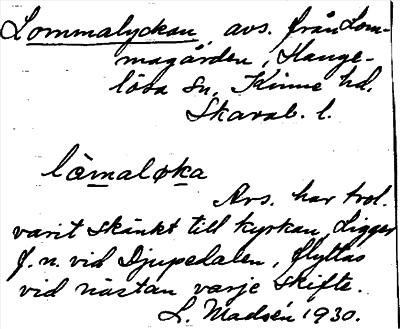 Lommalyckan, avs. från Lom-
magården, Hange-
lösa sn, Kinne hd.
Skarab. l.
lòmaløka
Avs. har trol.
varit skänkt till kyrkan. Ligger
f.n. vid Djupedalen, flyttas
vid nästan varje skifte.
L. Madsén 1930.